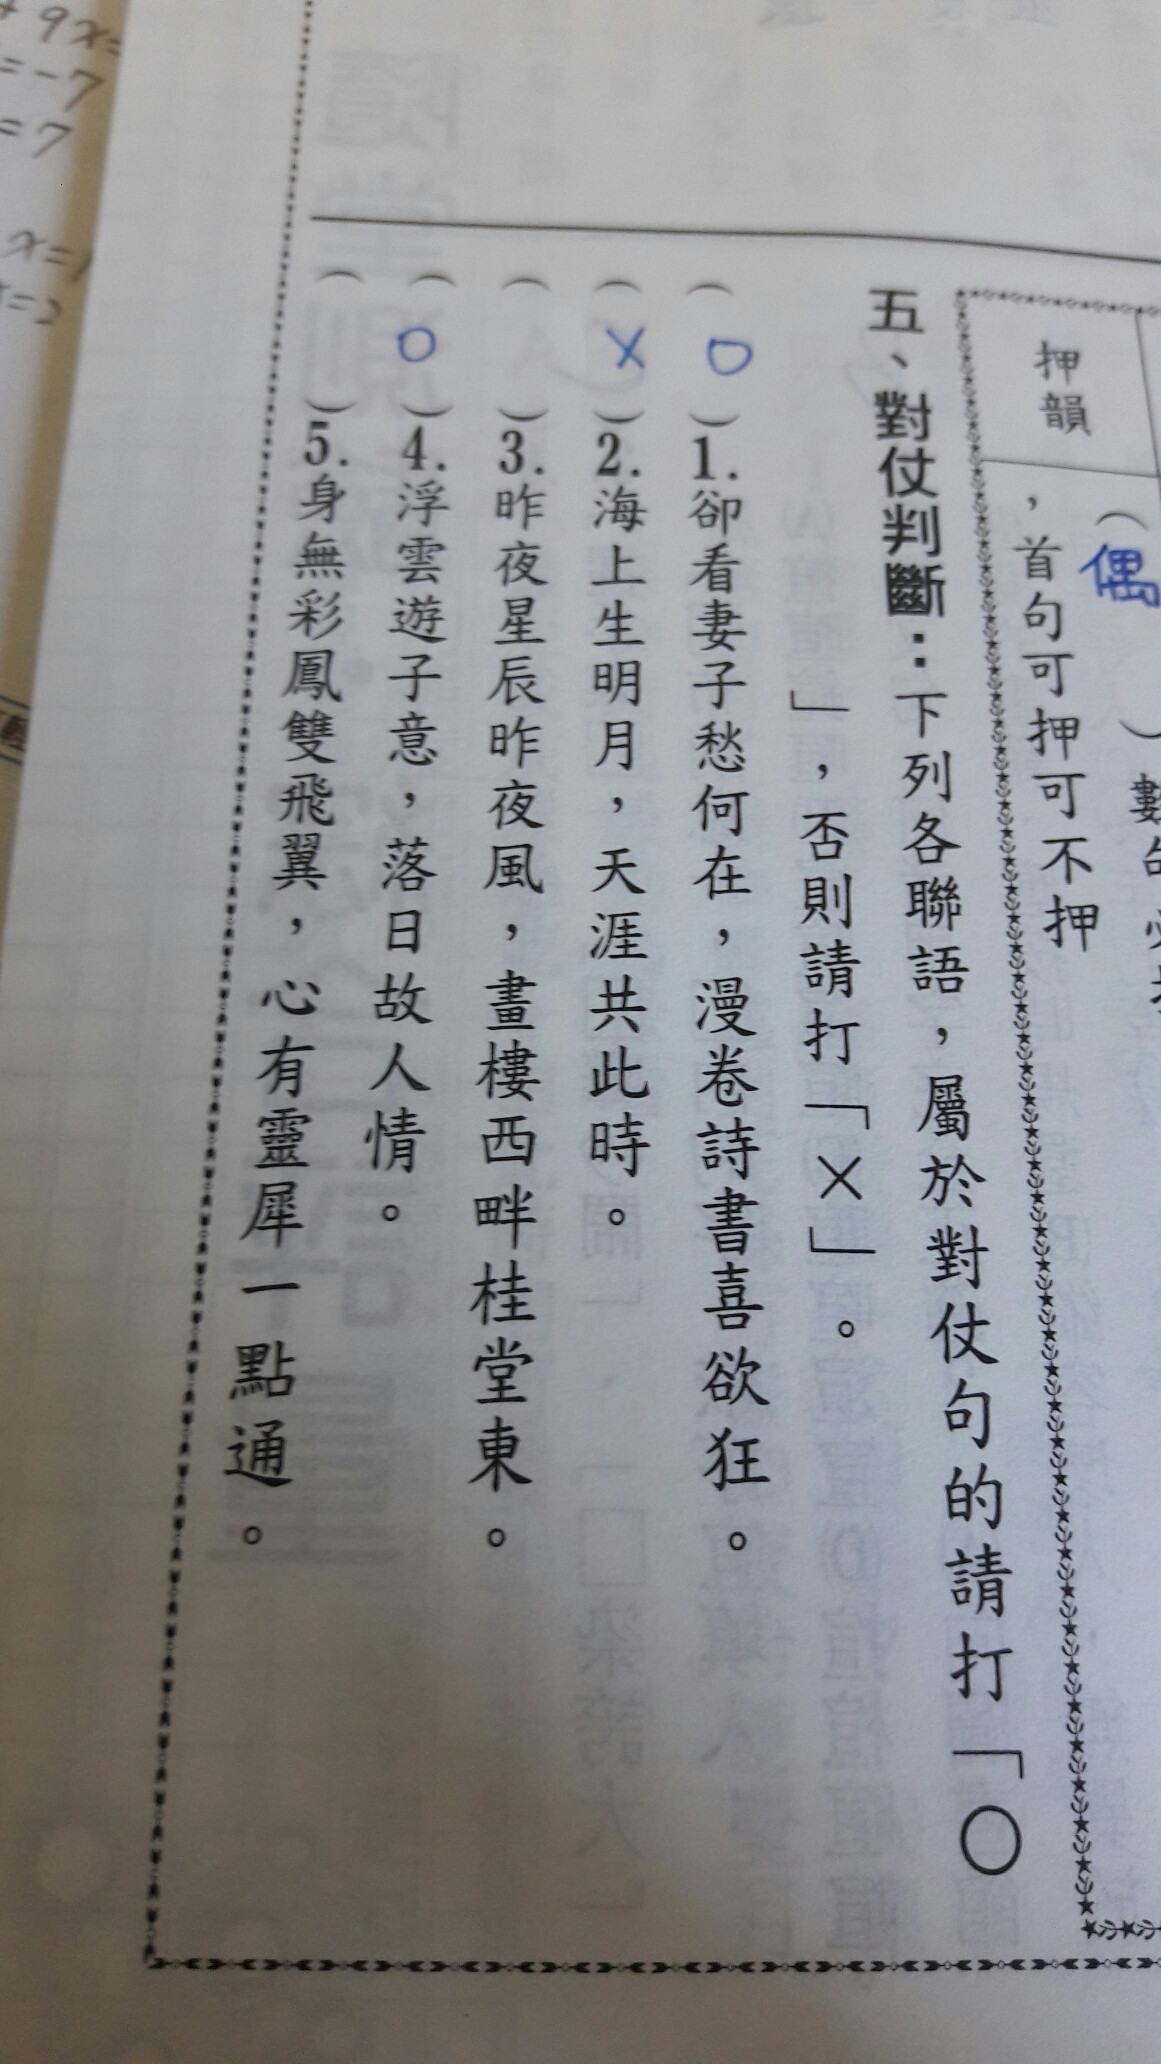 押韻
(偶)數句必押
，首句可押可不押
五、對仗判斷：下列各聯語，屬於對仗句的請打「○
」，否則請打「×」。
(O)1.卻看妻子愁何在，漫卷詩書喜欲狂。
(X)2.海上生明月，天涯共此時。
( )3.昨夜星辰昨夜風，畫樓西畔桂堂東。
(O)4.浮雲遊子意，落日故人情。
( )5.身無彩鳳雙飛翼，心有靈犀一點通。
+9x=
=-7
=7
x=1
=2